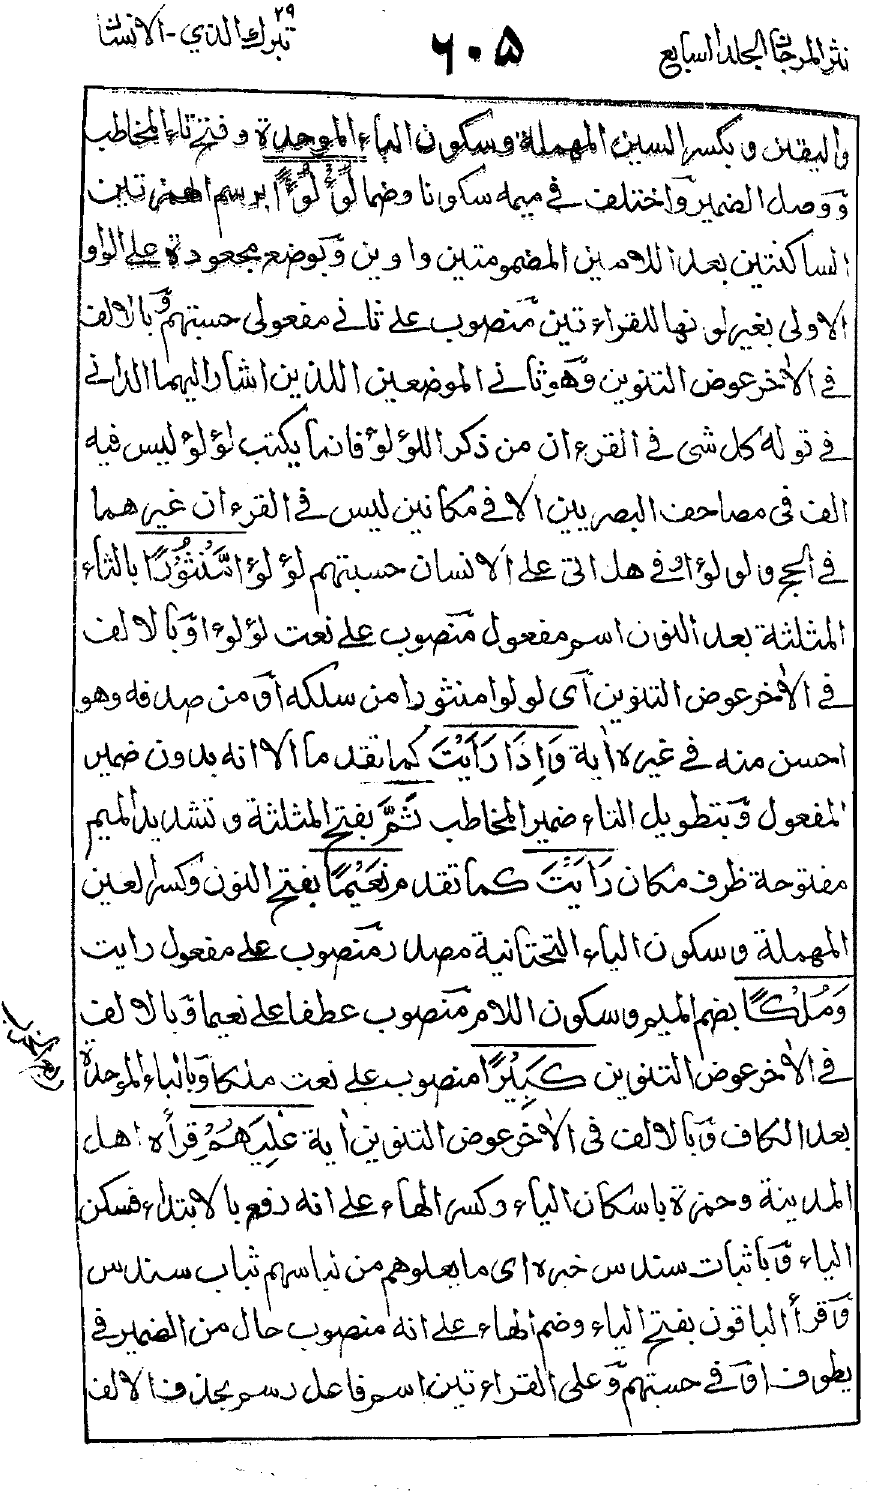 نثر المرجان الجلد السابع
٦٠٥
تبرك الذي ٢٩ - الانسان
واليقين وبكسر السين المهملة وسكون الباء الموحدة وفتح تاء المخاطب
ووصل الضمير واختلف في ميمه سكونا وضما لُؤْلُؤًا برسم الهمزتين
الساكنتين بعد اللامين المضمومتين واوين وبوضع مجعودة على الواو
الاولى بغير لونها للقراءتين منصوب على ثاني مفعولى حسبتهم وبالالف
في الاخر عوض التنوين وهو ثاني الموضعين اللذين اشار اليهما الداني
في قوله كل شى في القرءان من ذكر اللؤلؤ فانما يكتب لؤلؤ ليس فيه
الف في مصاحف البصريين الا في مكانين ليس في القرءان غيرهما
في الحج ولولؤا وفي هل اتى على الانسان حسبتهم لؤلؤا مَّنْثُوْرًا بالثاء
المثلثة بعد النون اسم مفعول منصوب على نعت لؤلوءا وبالالف
في الاخر عوض التنوين اى لولوا منثورا من سلكه او من صدفه وهو
احسن منه في غيره اية وَاِذَا رَاَيْتَ كما تقدم الا انه بدون ضمير
المفعول وبتطويل التاء ضمير المخاطب ثَمَّ بفتح المثلثة وتشديد الميم
مفتوحة ظرف مكان رَاَيْتَ كما تقدم نَعِيْمًا بفتح النون وكسر العين
المهملة وسكون الياء التحتانية مصدر منصوب على مفعول رايت
وَمُلْكًا بضم الميم وسكون اللام منصوب عطفا على نعيما وبالالف
في الاخر عوض التنوين كَبِيْرًا منصوب على نعت ملكا وبالباء الموحدة
بعد الكاف وبالالف في الاخر عوض التنوين اية عٰلِيَهُمْ قرأه اهل
المدينة وحمزة باسكان الياء وكسر الهاء على انه رفع بالابتداء فسكن
الياء وباثبات سندس خبره اى ما يعلوهم من لباسهم ثياب سندس
وقرأ الباقون بفتح الياء وضم الهاء على انه منصوب حال من الضمير في
يطوف او في حسبتهم وعلى القراءتين اسم فاعل رسم بحذف الالف